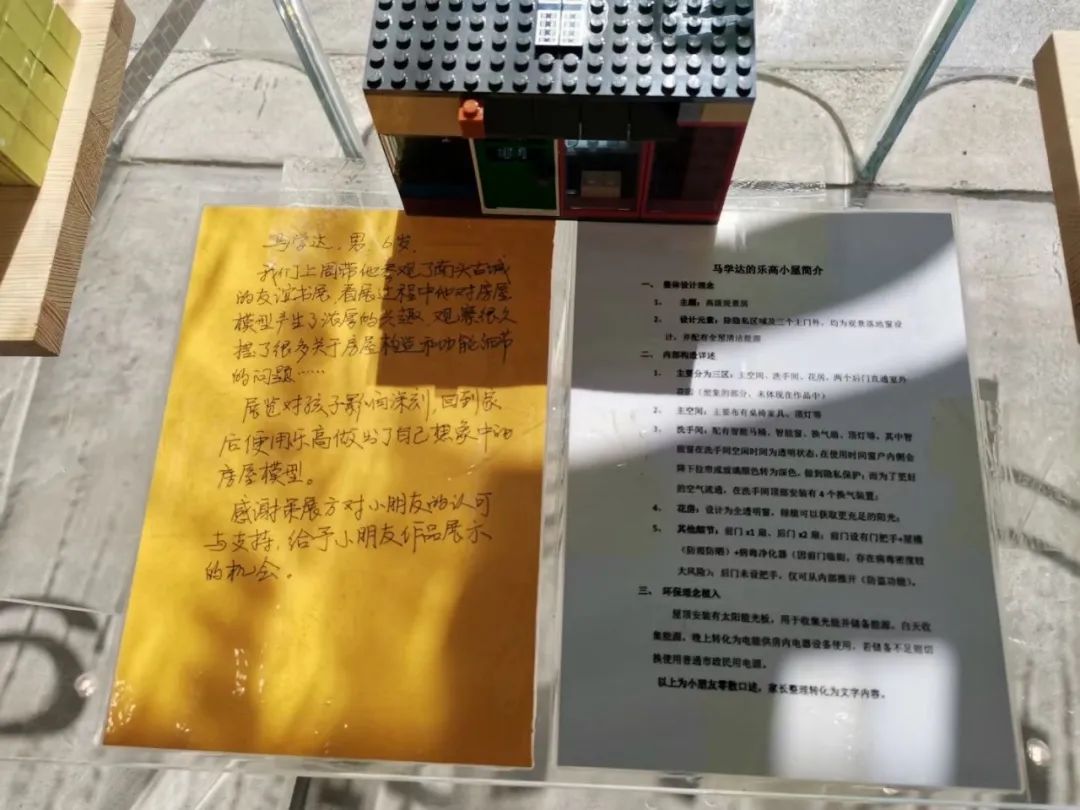 马学达，男，6岁，
我们上周带他参观了南头古城
的友谊书展，看展过程中他对房屋
模型产生了浓厚的兴趣，观察很久
提了很多关于房屋构造和功能细节
的问题……
展览对孩子影响深刻，回到家
后便用乐高做出了自己想象中的
房屋模型。
感谢策展方对小朋友的认可
与支持，给予小朋友作品展示
的机会。
马学达的乐高小屋简介
一、 整体设计理念
1、 主题：高级观景房
2、 设计元素：除隐私区域及三个主门外，均为观景落地窗设
计，并配有全屋清洁能源
二、 内部构造详述
1、 主要分为三区：主空间、洗手间、花房，两个后门直通室外
花园（想象的部分，未体现在作品中）
2、 主空间：主要布有桌椅家具、顶灯等
3、 洗手间：配有智能马桶、智能窗、换气扇、顶灯等，其中智
能窗在洗手间空闲时间为透明状态，在使用时间窗户内侧会
降下拉帘或玻璃颜色转为深色，做到隐私保护；而为了更好
的空气流通，在洗手间顶部安装有4个换气装置；
4、 花房：设计为全透明窗，绿植可以获取更充足的阳光；
5、 其他细节：前门x1扇、后门x2扇；前门设有门把手+屋檐
（防雨防晒）+病毒净化器（因前门临街，存在病毒密度较
大风险）；后门未设把手，仅可从内部推开（防盗功能）。
三、 环保理念植入
屋顶安装有太阳能光板，用于收集光能并储备能源，白天收
集能源，晚上转化为电能供房内电器设备使用，若储备不足则切
换使用普通市政民用电源。
以上为小朋友零散口述，家长整理转化为文字内容。